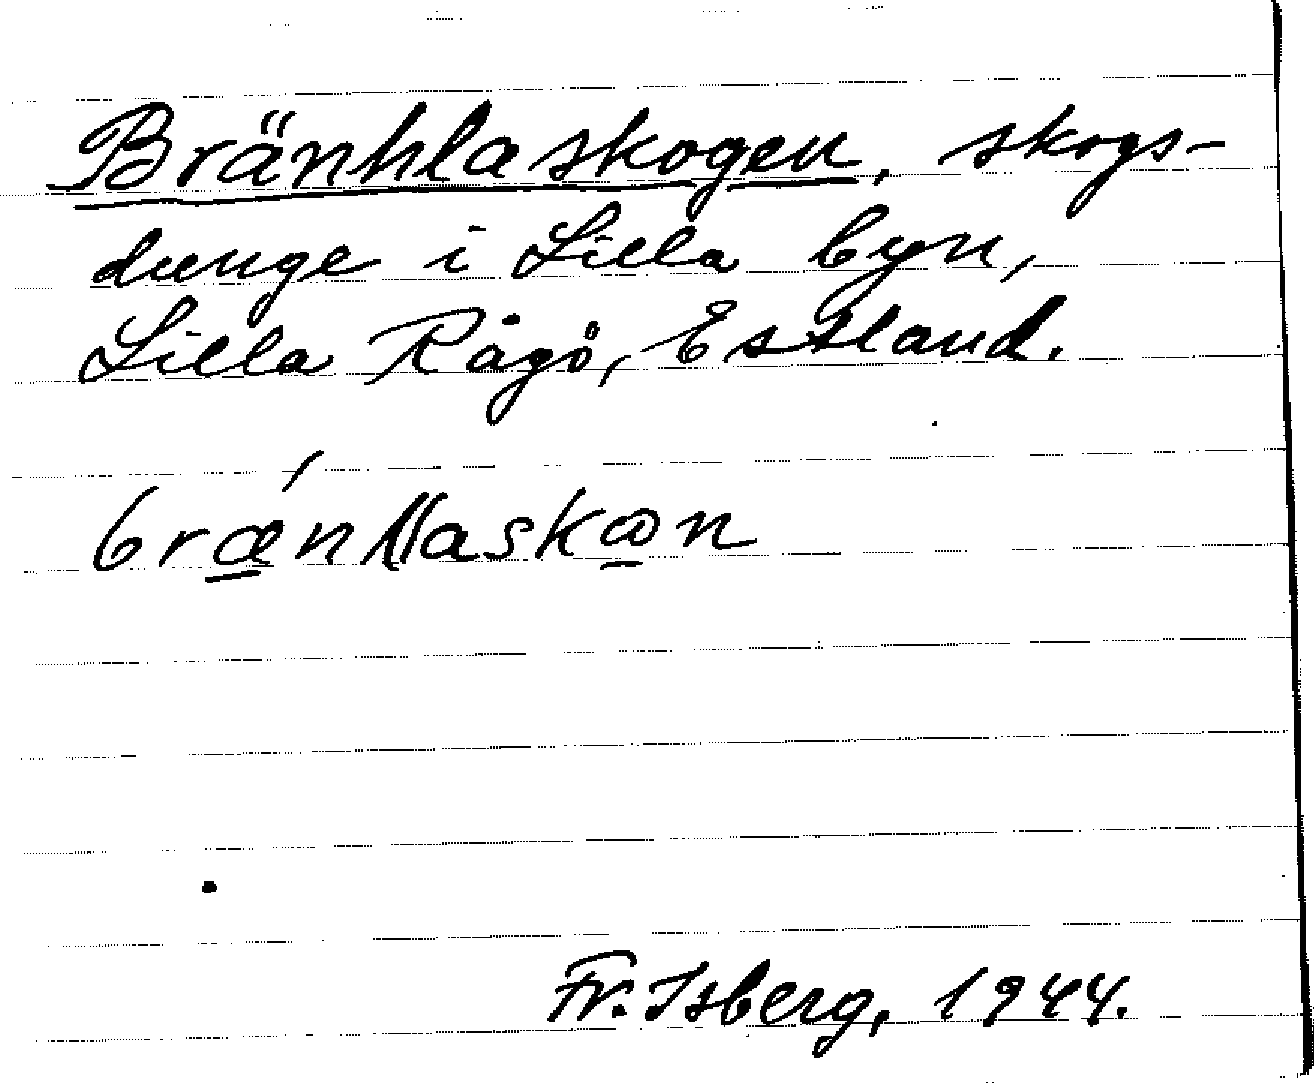 Bränhlaskogen, skogs-
dunge i Lilla byn,
Lilla Rågö, Estland.
Fr. Isberg, 1944.